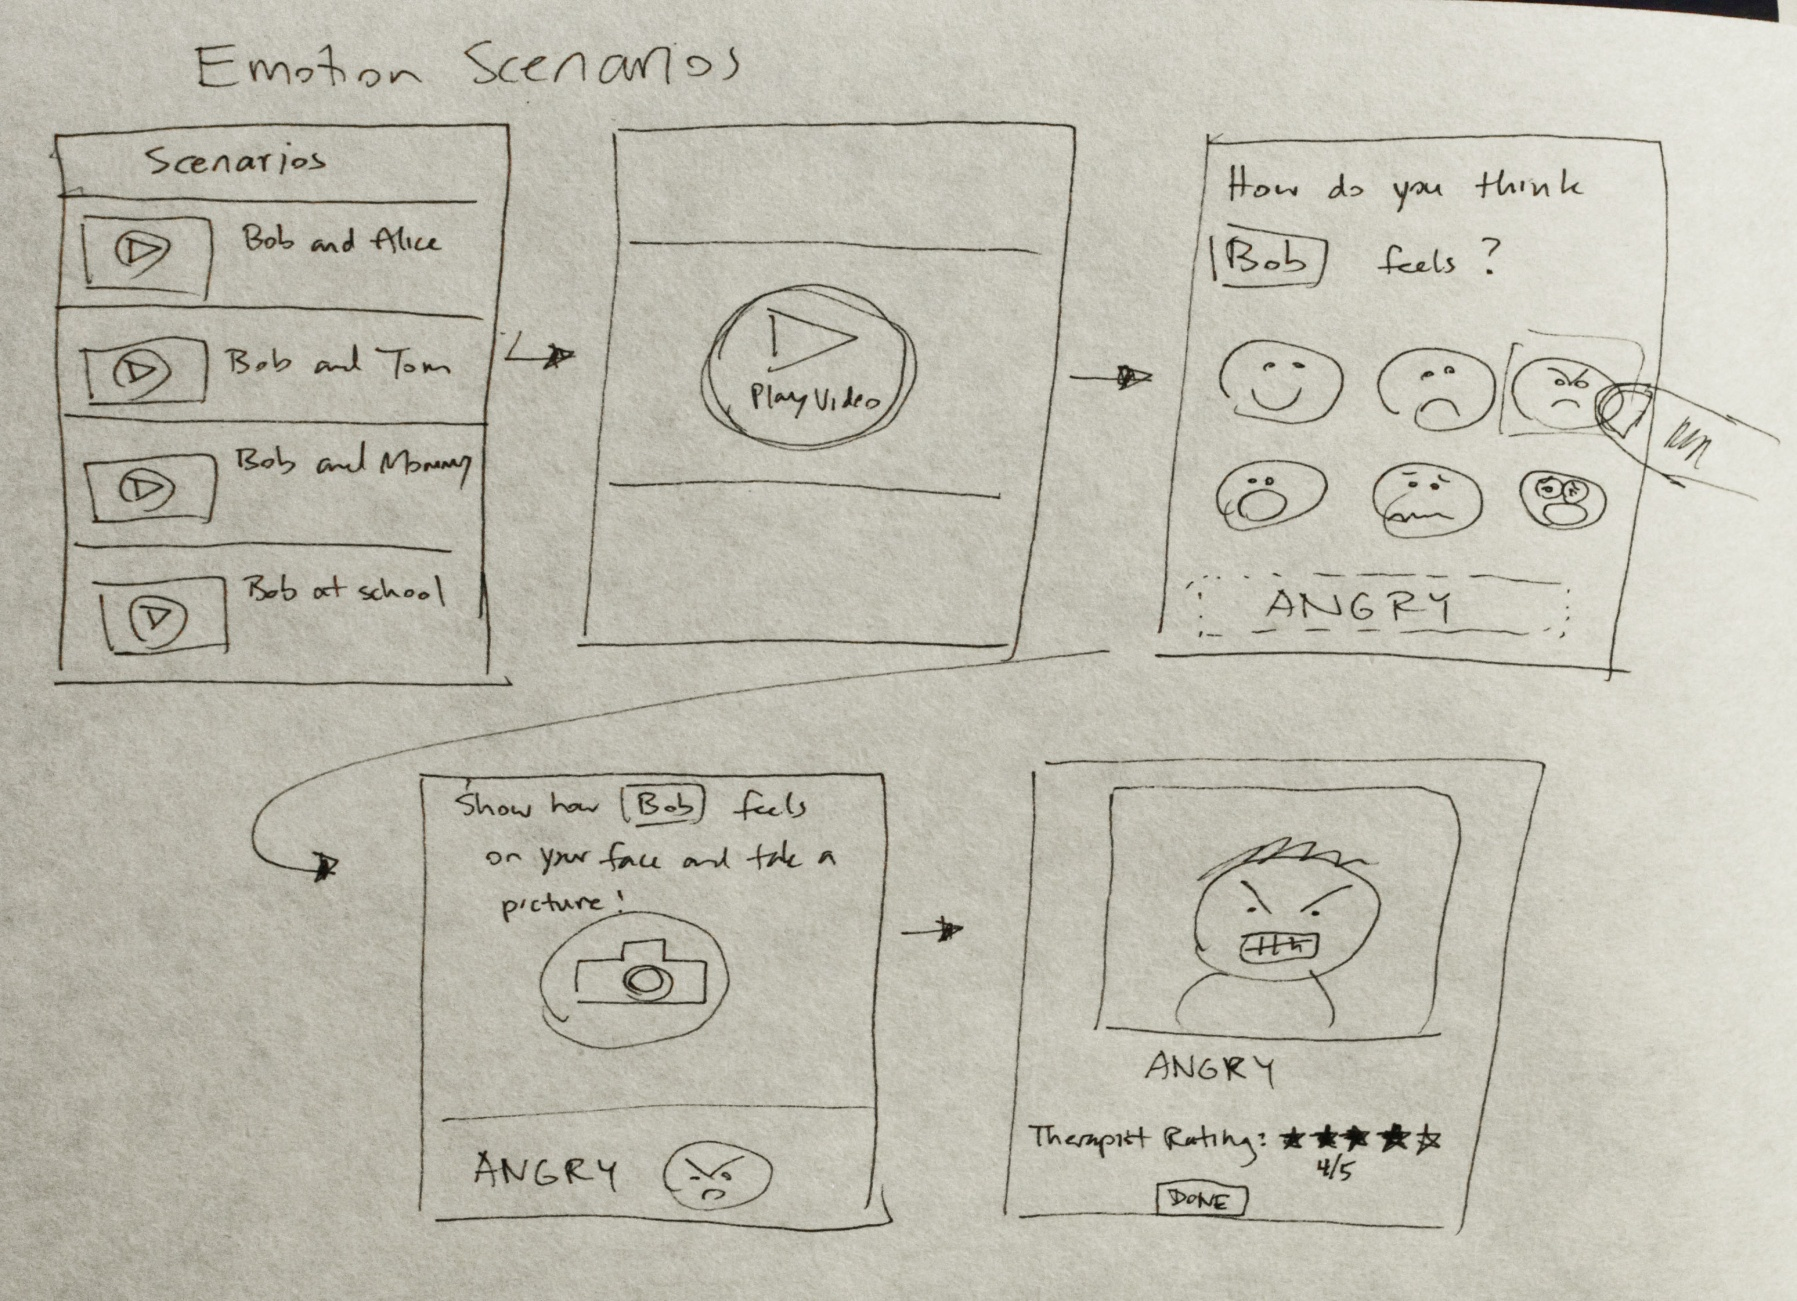 Emotion Scenarios
Scenarios
Bob and Alice
Bob and Tom
Bob and Mommy
Bob at school
Play Video
How do you think
Bob feels?
ANGRY
Show how Bob feels
on your face and take a
picture!
ANGRY
ANGRY
Therapist Rating: ★★★★☆
4/5
DONE